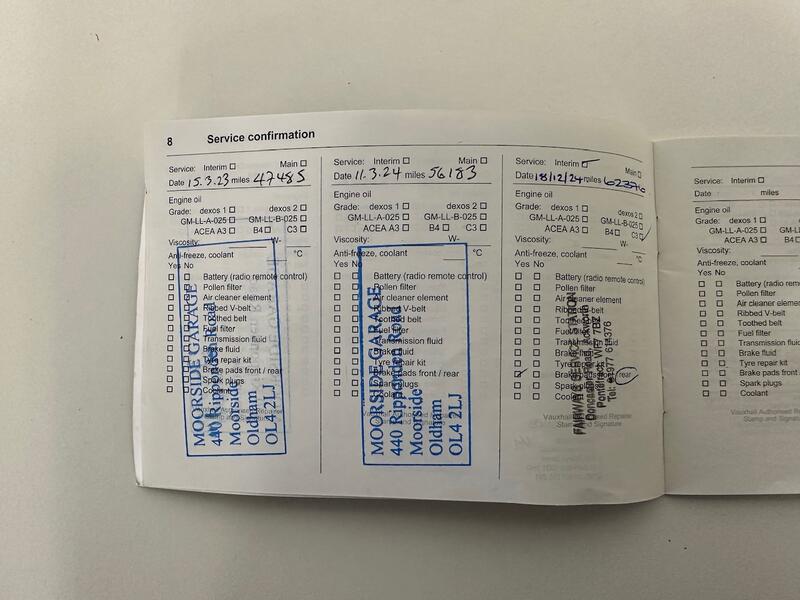 8 Service confirmation
Service: Interim ☐ Main ☐
Date 15.3.23 miles 47485
Engine oil
Grade: dexos 1 ☐ dexos 2 ☐
GM-LL-A-025 ☐ GM-LL-B-025 ☐
ACEA A3 ☐ B4 ☐ C3 ☐
Viscosity: W-
Anti-freeze, coolant °C
Yes No
Battery (radio remote control)
Pollen filter
Air cleaner element
Ribbed V-belt
Toothed belt
Fuel filter
Transmission fluid
Brake fluid
Tyre repair kit
Brake pads front / rear
Spark plugs
Coolant
MOORSIDE GARAGE
440 Ripponden Road
Moorside
Oldham
OL4 2LJ
Service: Interim ☐ Main ☐
Date 11.3.24 miles 56183
Engine oil
Grade: dexos 1 ☐ dexos 2 ☐
GM-LL-A-025 ☐ GM-LL-B-025 ☐
ACEA A3 ☐ B4 ☐ C3 ☐
Viscosity: W-
Anti-freeze, coolant °C
Yes No
Battery (radio remote control)
Pollen filter
Air cleaner element
Ribbed V-belt
Toothed belt
Fuel filter
Transmission fluid
Brake fluid
Tyre repair kit
Brake pads front / rear
Spark plugs
Coolant
MOORSIDE GARAGE
440 Ripponden Road
Moorside
Oldham
OL4 2LJ
Service: Interim ☐ Main ☐
Date 18/12/24 miles
Engine oil
Grade: dexos 1 ☐ dexos 2 ☐
GM-LL-A-025 ☐ GM-LL-B-025 ☐
ACEA A3 ☐ B4 ☐ C3 ☐
Viscosity: W-
Anti-freeze, coolant °C
Yes No
Battery (radio remote control)
Pollen filter
Air cleaner element
Ribbed V-belt
Toothed belt
Fuel filter
Transmission fluid
Brake fluid
Tyre repair kit
Brake pads front / rear
Spark plugs
Coolant
Vauxhall Authorised Repairer
Stamp and Signature
FAIRWAY SERVICE STATION
Doncaster Road,
Pontefract, WF7 7BZ
Service: Interim ☐
Date miles
Engine oil
Grade: dexos 1 ☐
GM-LL-A-025 ☐
ACEA A3 ☐ B4
Viscosity:
Anti-freeze, coolant
Yes No
Battery (radio
Pollen filter
Air cleaner element
Ribbed V-belt
Toothed belt
Fuel filter
Transmission fluid
Brake fluid
Tyre repair kit
Brake pads front
Spark plugs
Coolant
Vauxhall Authorised
Stamp and